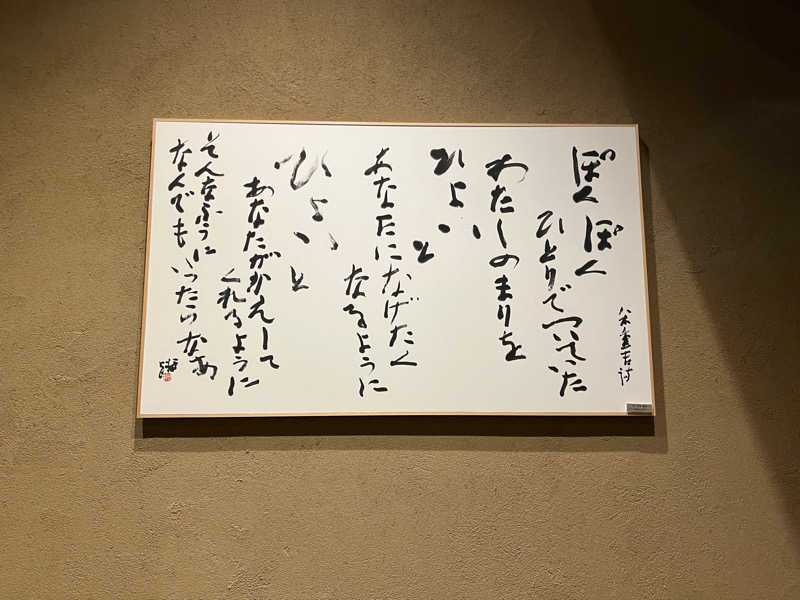 ぽくぽく
ひとりでついていた
わたしのまりを
ひょいと
あなたになげたく
なるように
ひょいと
あなたがかえして
くれるように
そんなふうに
なんでもいったらなあ
八木重吉詩